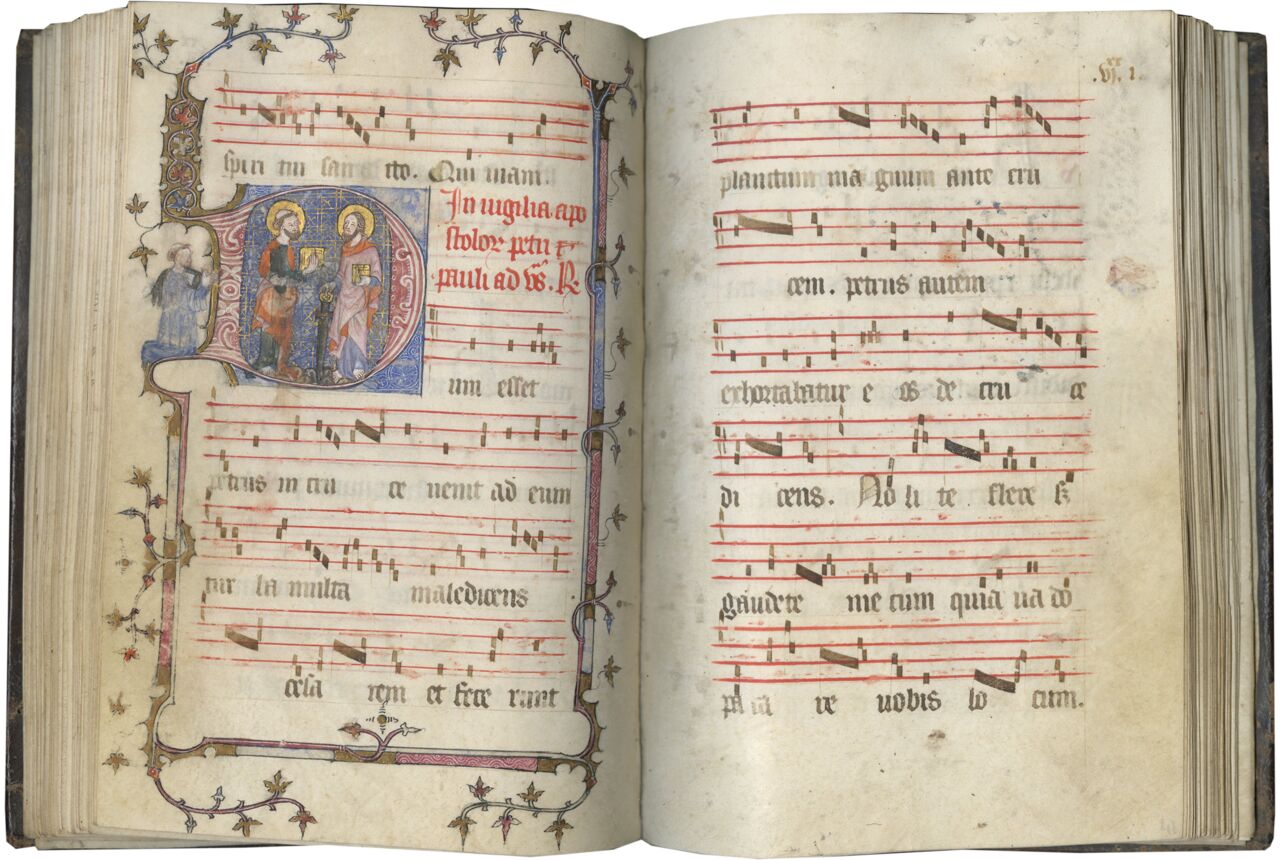 spiri tui sanc tto. Qui mani.
In uigilia apo
stolor petri et
pauli ad vs. R
um esset
petrus in cru ce uenit ad eum
tur la multa maledicens
cesa rem et fece runt
.vj.xx 1.
planctum ma gnum ante cru
cem. petrus autem
exhortabatur e os de cru ce
di cens. No li te flere sz
gaudete me cum quia ua do
pa ra re uobis lo cum.